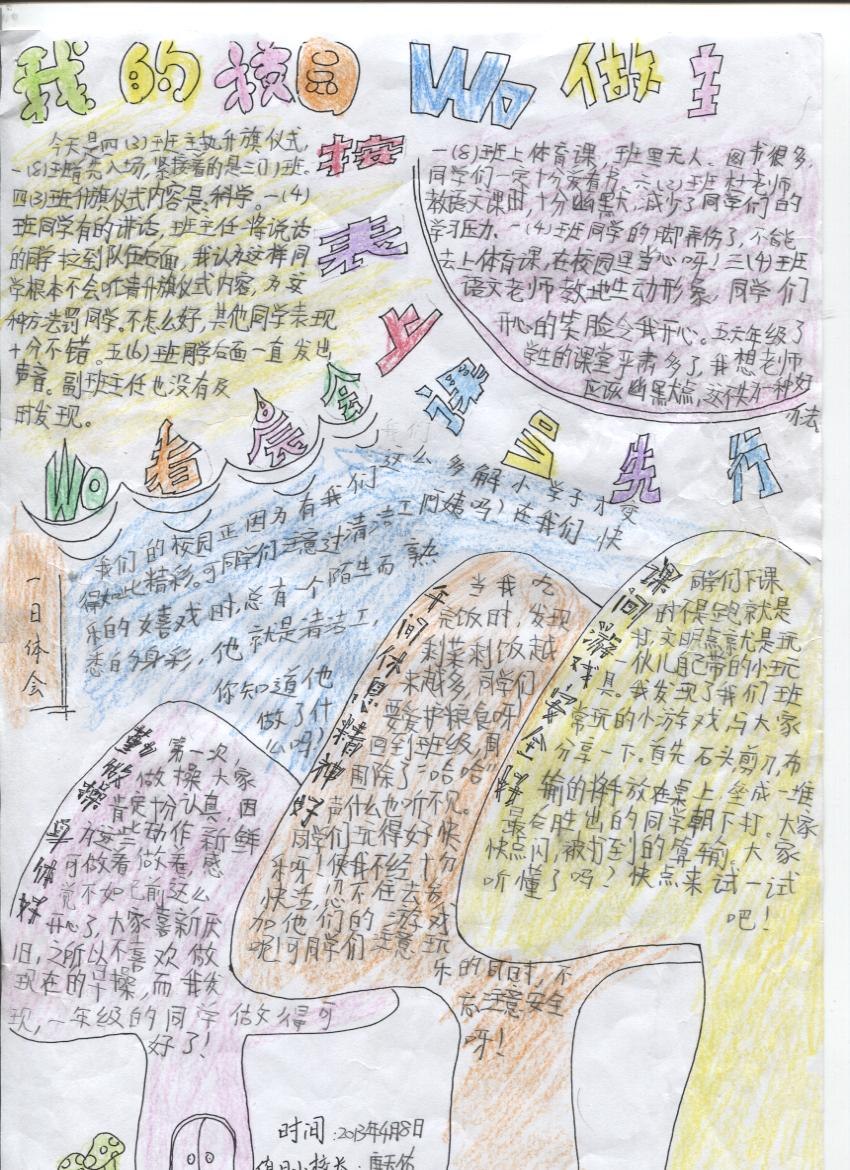 我的校园 Wo 做主
今天是四(3)班主执升旗仪式,
一(8)班首先入场,紧接着的是三(1)班。
四(3)班升旗仪式内容是:科学。一(4)
班同学有的讲话,班主任将说话
的同学拉到队伍后面,我认为这样同
学根本不会听清升旗仪式内容,
种方法罚同学。不怎么好,其他同学表现
十分不错。五(6)班同学后面一直发出
声音。副班主任也没有及
时发现。
Wo 看晨会
接表上课 Wo 先行
一(8)班上体育课,班里无人。图书很多,
同学们一定十分爱看书。六(2)班杜老师
教语文课时,十分幽默,减少了同学们的
学习压力。一(4)班同学的脚弄伤了,不能
去上体育课,在校园里当心呀!三(4)班
语文老师教地生动形象,同学们
开心的笑脸令我开心。五六年级了
学生的课堂严肃多了,我想老师
应该幽默点,这不失为一种好
办法。
一日体会
我们的校园正因为有我们这么多解小学子才变
得如此精彩。可同学们注意过清洁工阿姨吗?在我们快
乐的嬉戏时,总有一个陌生而熟
悉的身彩,他就是清洁工,
你知道他
做了什
么吗?
勤做操 身体好
第一次,
做操大家
肯定十分认真,因
为这些动作新鲜
可做着做着感
觉不如已前这么
开心了,大家喜新厌
旧,之所以不喜欢做
现在的早操,而我发
现,一年级的同学做得可
好了!
午间休息精神好
当我吃
完饭时,发现
剩菜剩饭越
来越多,同学们
要爱护粮食呀!
回到班级,周
围除了“哈哈”
声什么也听不见。
同学们玩得好快
乐呀!使我不经十分
快活,忍不住去参
加他们的游戏
呢!可同学们注意玩
乐的同时,不
忘注意安全
呀!
课间游戏安全
同学们下课
时候跑就是
打,文明点就是玩
一伙儿自己带的小玩
具。我发现了我们班
常玩的小游戏与大家
分享一下。首先石头剪刀布
输的将手放在桌上,垒成一堆,
最后胜出的同学朝下打。大家
快点闪,被打到的算输。大家
听懂了吗?快点来试一试
吧!
时间:2013年4月8日
值日小校长: